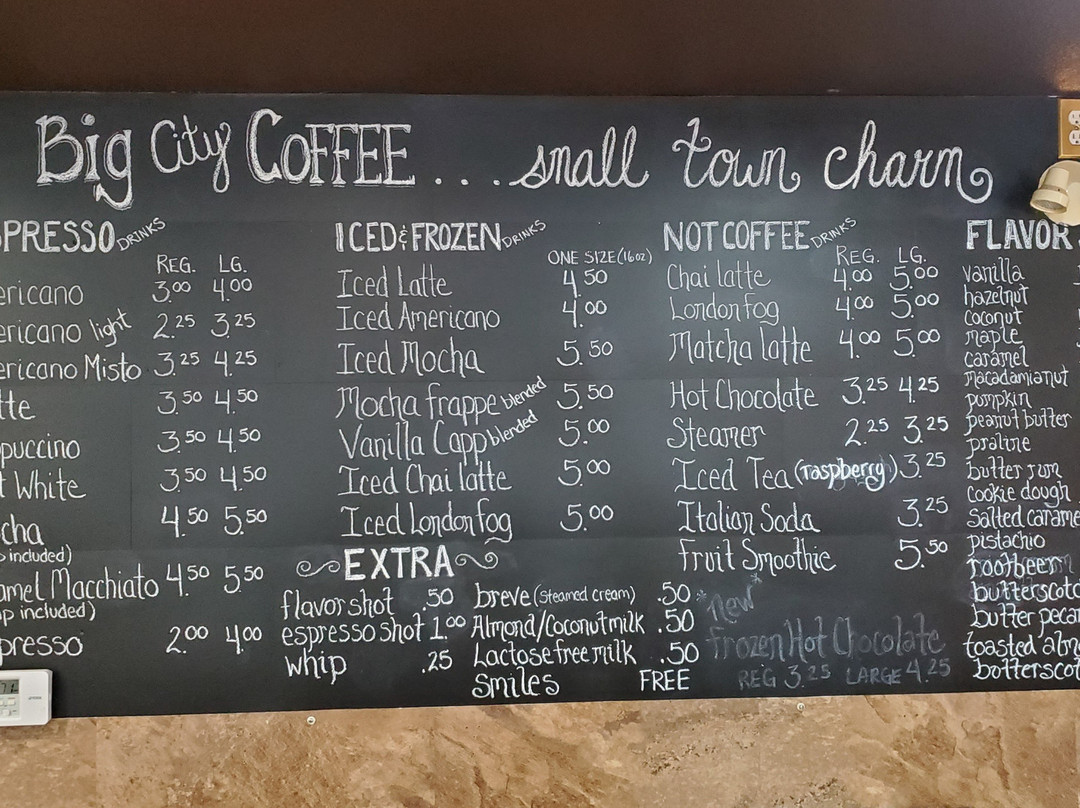 Big City COFFEE ... small town charm
PRESSO DRINKS
REG. LG.
ericano 3.00 4.00
ericano light 2.25 3.25
ericano Misto 3.25 4.25
tte 3.50 4.50
puccino 3.50 4.50
t White 3.50 4.50
cha 4.50 5.50
included)
amel Macchiato 4.50 5.50
p included)
presso 2.00 4.00
ICED & FROZEN DRINKS
ONE SIZE (16oz)
Iced Latte 4.50
Iced Americano 4.00
Iced Mocha 5.50
Mocha frappe blended 5.50
Vanilla Capp blended 5.00
Iced Chai latte 5.00
Iced London fog 5.00
EXTRA
flavor shot .50
espresso shot 1.00
whip .25
breve (steamed cream) .50
Almond/Coconut milk .50
Lactose free milk .50
Smiles FREE
NOT COFFEE DRINKS
REG. LG.
Chai latte 4.00 5.00
London fog 4.00 5.00
Matcha latte 4.00 5.00
Hot Chocolate 3.25 4.25
Steamer 2.25 3.25
Iced Tea (raspberry) 3.25
Italian Soda 3.25
Fruit Smoothie 5.50
*New*
Frozen Hot Chocolate
REG 3.25 LARGE 4.25
FLAVOR
vanilla
hazelnut
coconut
maple
caramel
macadamia nut
pumpkin
peanut butter
praline
butter rum
cookie dough
Salted carame
pistachio
rootbeer
butterscotc
butter pecan
toasted almo
botterscot